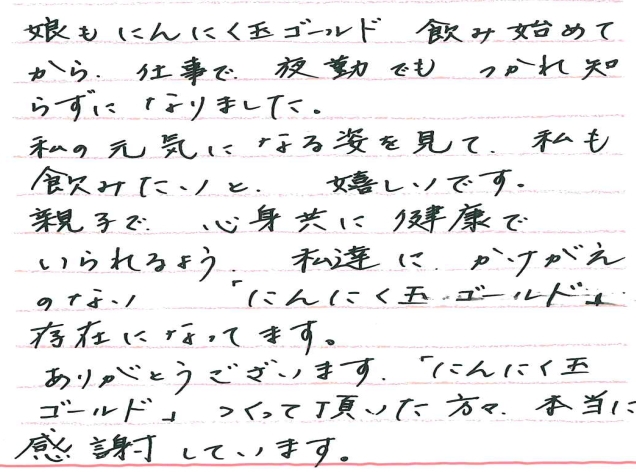 娘もにんにく玉ゴールド 飲み始めて
から、仕事で、夜勤でも つかれ知
らずに なりました。
私の元気に なる姿を見て、私も
飲みたいと、 嬉しいです。
親子で、心身共に健康で
いられるよう、 私達に、かけがえ
のない 「にんにく玉 ゴールド」
存在に なってます。
ありがとうございます、「にんにく玉
ゴールド」 つくって頂いた方々、本当に
感謝しています。